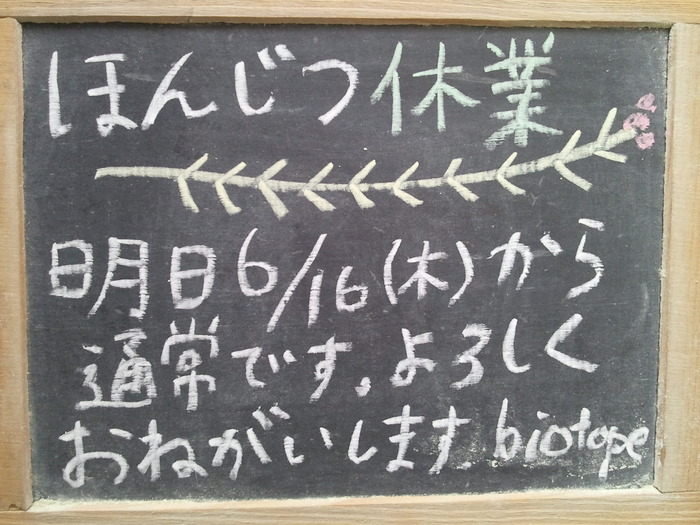 ほんじつ休業
明日6/16(木)から
通常です。よろしく
おねがいします。biotope